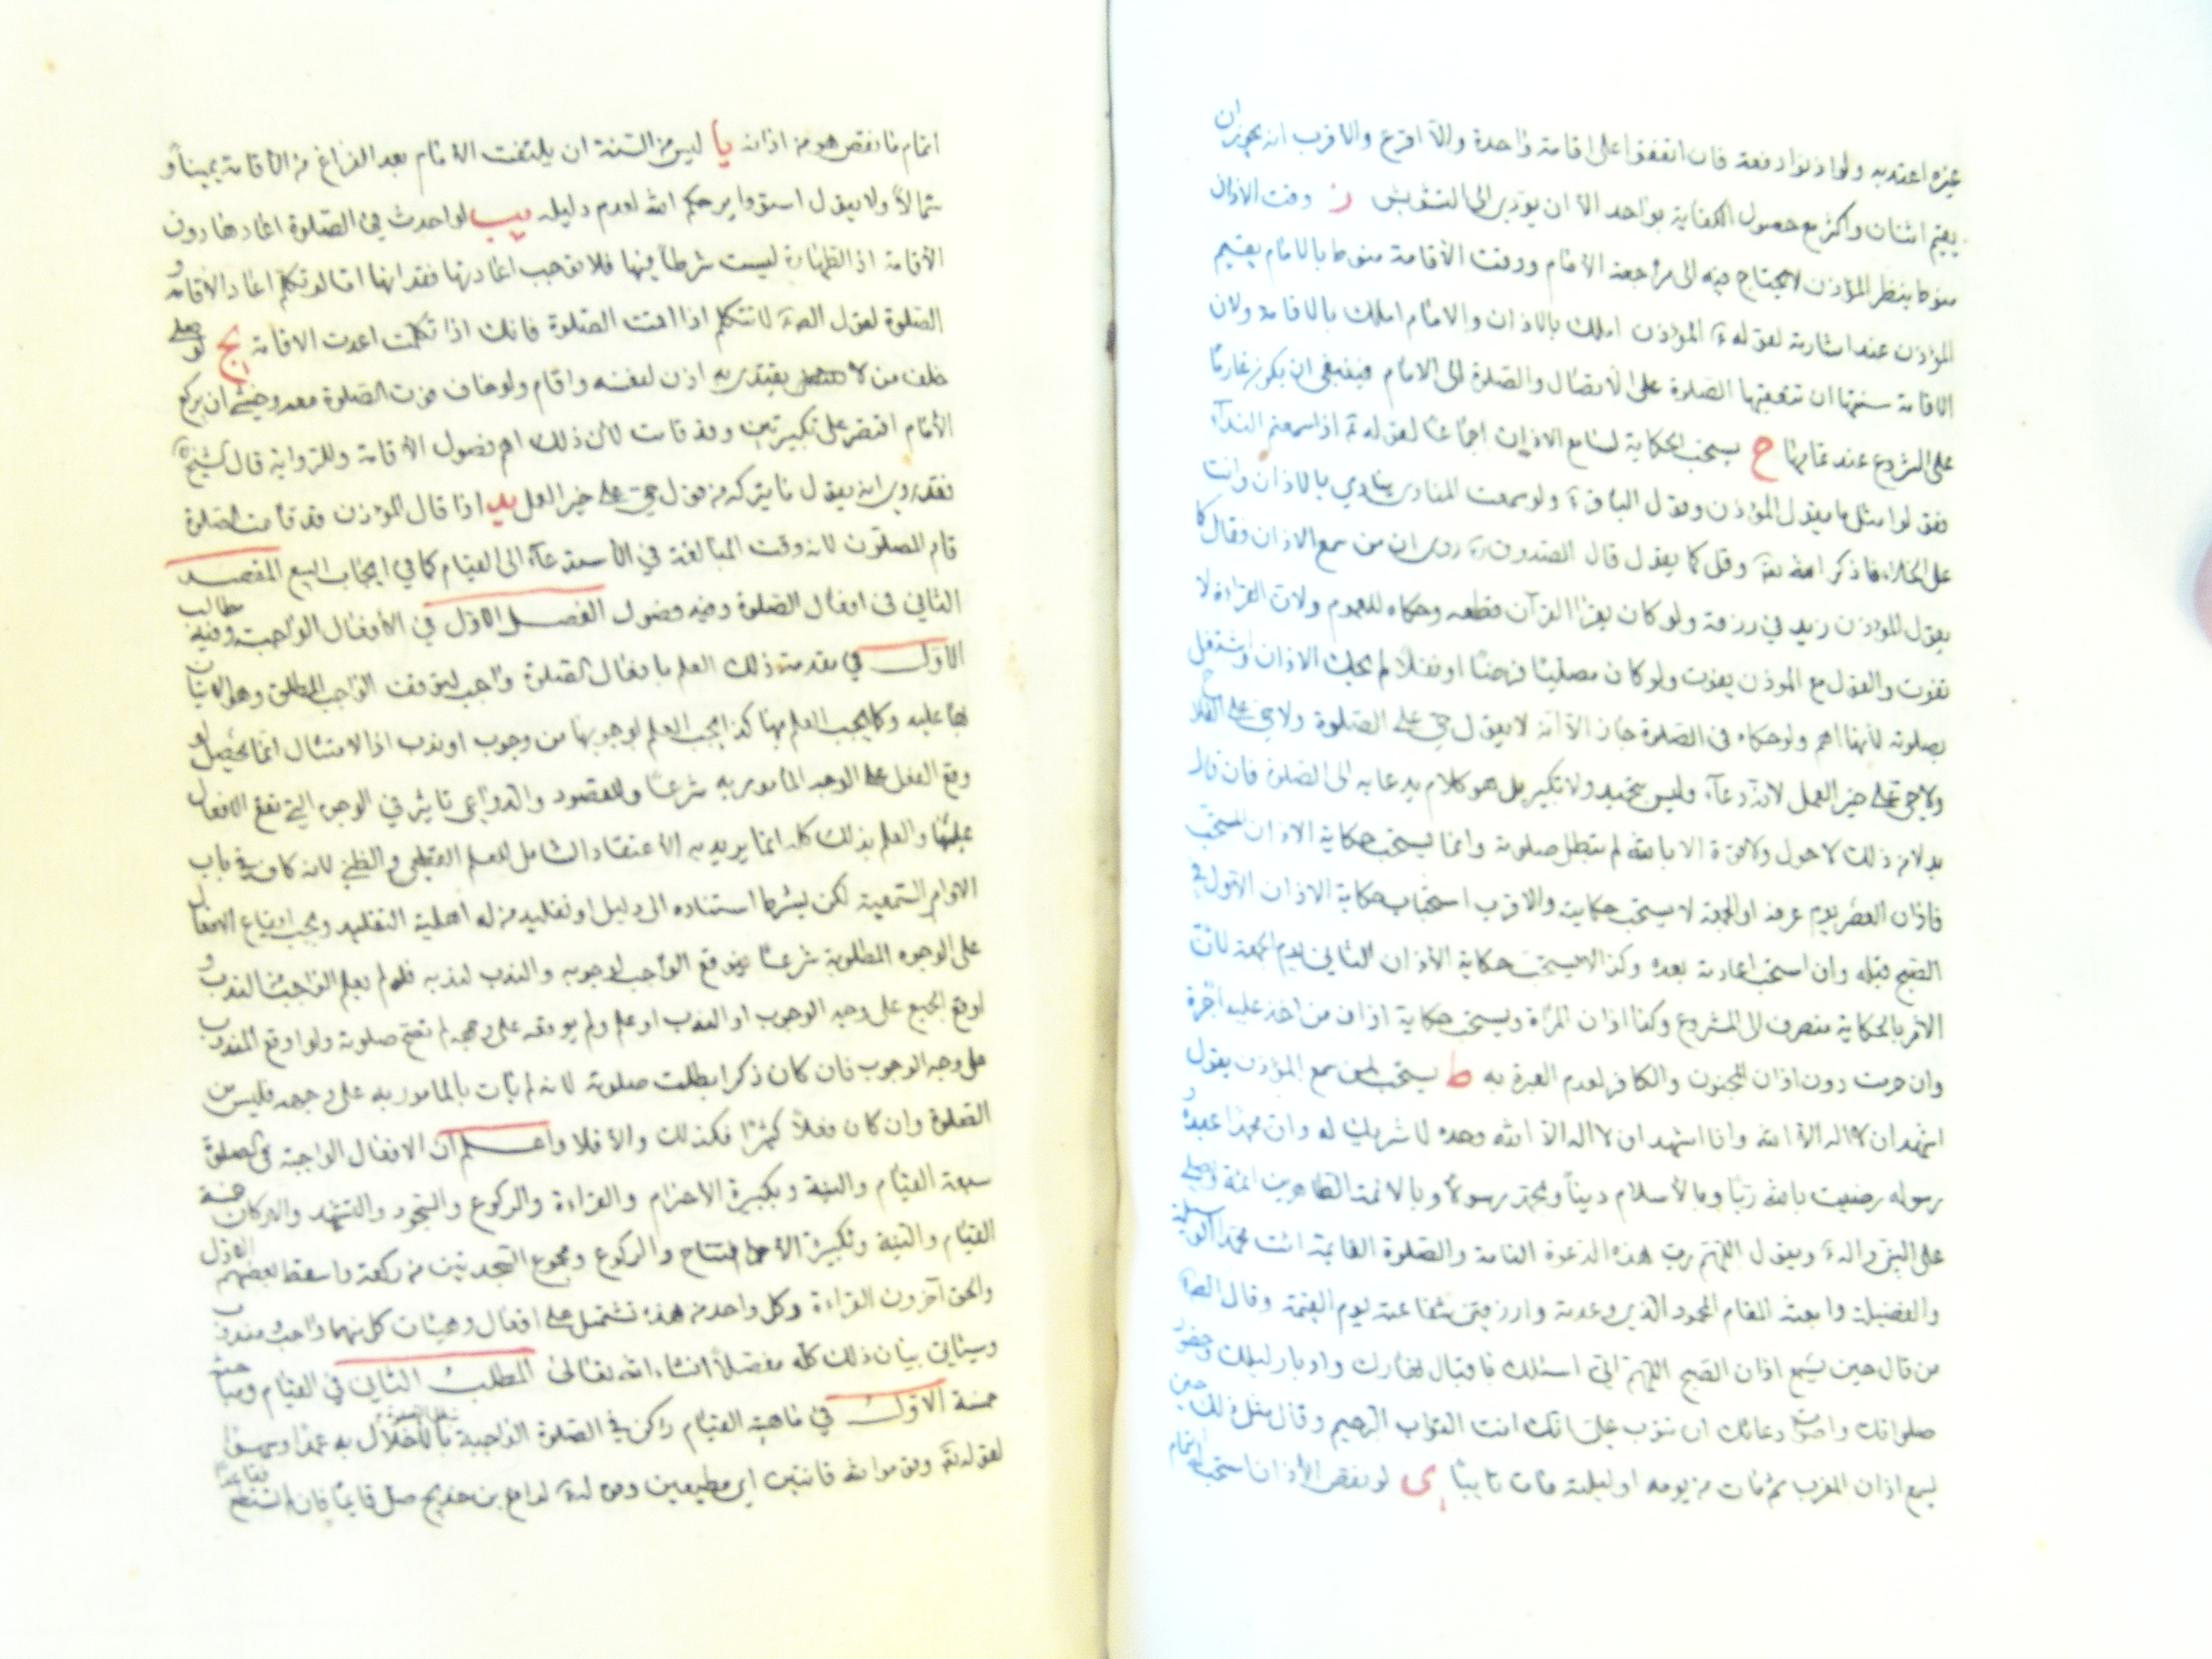 غيره اعتد به ولو اذنوا دفعة فان اتفقوا على اقامة واحدة والا اقرع والاقرب انه يجوز ان
يقيم اثنان واكثر مع حصول الكفاية بواحد الا ان يؤدى الى التشويش ز وقت الاذان
منوط بنظر المؤذن لا يحتاج فيه الى مراجعة الامام ووقت الاقامة منوط بالامام يقيم
المؤذن عند اشارته لقوله ع المؤذن املك بالاذان والامام املك بالاقامة ولان
الاقامة سنتها ان تتعقبها الصلوة على الاتصال والصلوة الى الامام فينبغي ان يكون عازما
على الشروع عند تمامها ح يستحب الحكاية لسامع الاذان اجماعا لقوله ع اذا سمعتم الندآء
فقولوا مثل ما يقول المؤذن وقول الباقر ع ولو سمعت المنادى ينادي بالاذان وانت
على الخلاء فاذكر الله تع وقل كما يقول قال الصدوق ره روى ان من سمع الاذان فقال كما
يقول المؤذن زيد في رزقه ولو كان يقرا القرآن قطعه وحكاه للعموم ولان القراءة لا
تفوت والقول مع الموذن يفوت ولو كان مصليا فرضا او نفلا لم يحك الاذان واشتغل
بصلوته لانها اهم ولو حكاه فى الصلوة جاز الا انه لا يقول حي على الصلوة ولا حي على الفلاح
ولا حي على خير العمل لانه دعآء وليس بتحميد ولا تكبير بل هو كلام يدعا به الى الصلوة فان قال
بدلا من ذلك لا حول ولا قوة الا بالله لم تبطل صلوته وانما يستحب حكاية الاذان المستحب
فاذان العصر يوم عرفة او الجمعة لا يستحب حكايته والاقرب استحباب حكاية الاذان الاول في
الصبح قبله وان استحب اعادته بعده وكذا لا يستحب حكاية الأذان الثاني يوم الجمعة لان
الامر بالحكاية منصرف الى المشروع وكذا اذان المرأة ويستحب حكاية اذان من اخذ عليه اجرة
وان حرمت دون اذان المجنون والكافر لعدم العبرة به ط يستحب لمن سمع المؤذن يقول
اشهد ان لا اله الا الله وانا اشهد ان لا اله الا الله وحده لا شريك له وان محمدا عبده و
رسوله رضيت بالله ربا وبالاسلام دينا وبمحمد رسولا وبالائمة الطاهرين ائمة ويصلى
على النبي وآله ع ويقول اللهم رب هذه الدعوة التامة والصلوة القايمة ائت محمدا الوسيلة
والفضيلة وابعثه المقام المحمود الذي وعدته وارزقني شفاعته يوم القيمة وقال الص ع
من قال حين يسمع اذان الصبح اللهم اني اسئلك باقبال نهارك وادبار ليلك وحضور
صلواتك واصوات دعائك ان تتوب علي انك انت التواب الرحيم وقال مثل ذلك حين
يسمع اذان المغرب ثم مات من يومه او ليلته مات تايبا ى لو نقص الأذان استحب له اتمام
اتمام ما نقص هو من اذانه يا ليس من السنة ان يلتفت الامام بعد الفراغ من الاقامة يمينا و
شمالا ولا يقول استووا يرحمكم الله لعدم دليله يب لو احدث في الصلوة اعادها دون
الأقامة اذ الطهارة ليست شرطا فيها فلا توجب اعادتها فقدانها اما لو تكلم اعاد الاقامة و
الصلوة لقول الص ع لا تتكلم اذا اقمت الصلوة فانك اذا تكلمت اعدت الاقامة يج لو صلى
خلف من لا يقتدى به اذن لنفسه واقام ولو خاف فوت الصلوة معه وخشى ان يركع
الأمام اقتصر على تكبيرتين وقد قامت لان ذلك اهم فصول الاقامة وللرواية قال الشيخ ره
فقد روى انه يقول ما يتركه من قول حي على خير العمل يد اذا قال المؤذن قد قامت الصلوة
قام المصلون لانه وقت المبالغة في الأستدعآء الى القيام كما في ايجاب البيع المقصد
الثاني فى افعال الصلوة وفيه فصول الفصل الاول في الأفعال الواجبة وفيه مطالب
الأول في مقدمة ذلك العلم بافعال الصلوة واجب لتوقف الواجب المطلق وهو الاتيان
بها عليه وكما يجب العلم بها كذا يجب العلم بوجوبها من وجوب او ندب اذ الامتثال انما يحصل لو
وقع الفعل على الوجه المأمور به شرعا وللقصود والدواعي تاثير في الوجوه التي تقع الافعال
عليها والعلم بذلك كله انما يريد به الأعتقاد الشامل للعلم القطعي والظني لانه كاف في باب
الاوامر السمعية لكن يشرط استناده الى دليل او تقليد من له اهلية التقليد ويجب ايقاع الافعال
على الوجوه المطلوبة شرعا فيوقع الواجب لوجوبه والندب لندبه فلو لم يعلم الواجب من الندب و
اوقع الجميع على وجه الوجوب او الندب او علم ولم يوقعه على وجهه لم تصح صلوته ولو اوقع المندوب
على وجه الوجوب فان كان ذكرا بطلت صلوته لانه لم يأت بالمامور به على وجهه فليس من
الصلوة وان كان فعلا كثيرا فكذلك والا فلا واعلم ان الافعال الواجبة في الصلوة
سبعة القيام والنية وتكبيرة الاحرام والقراءة والركوع والسجود والتشهد والاركان خمسة
القيام والنية وتكبيرة الافتتاح والركوع ومجموع السجدتين من ركعة واسقط بعضهم الاول
والحق آخرون القراءة وكل واحد من هذه تشتمل على افعال وهيئات كل منهما واجب ومندوب
وسيأتي بيان ذلك كله مفصلا انشاء الله تعالى المطلب الثاني في القيام ومباحثه
خمسة الاول في ماهيته القيام ركن في الصلوة الواجبة بالاخلال به عمدا وسهوا
لقوله تع وقوموا لله قانتين اي مطيعين وقوله ع لرافع بن خديج صل قايما فان لم تستطع فقاعدا